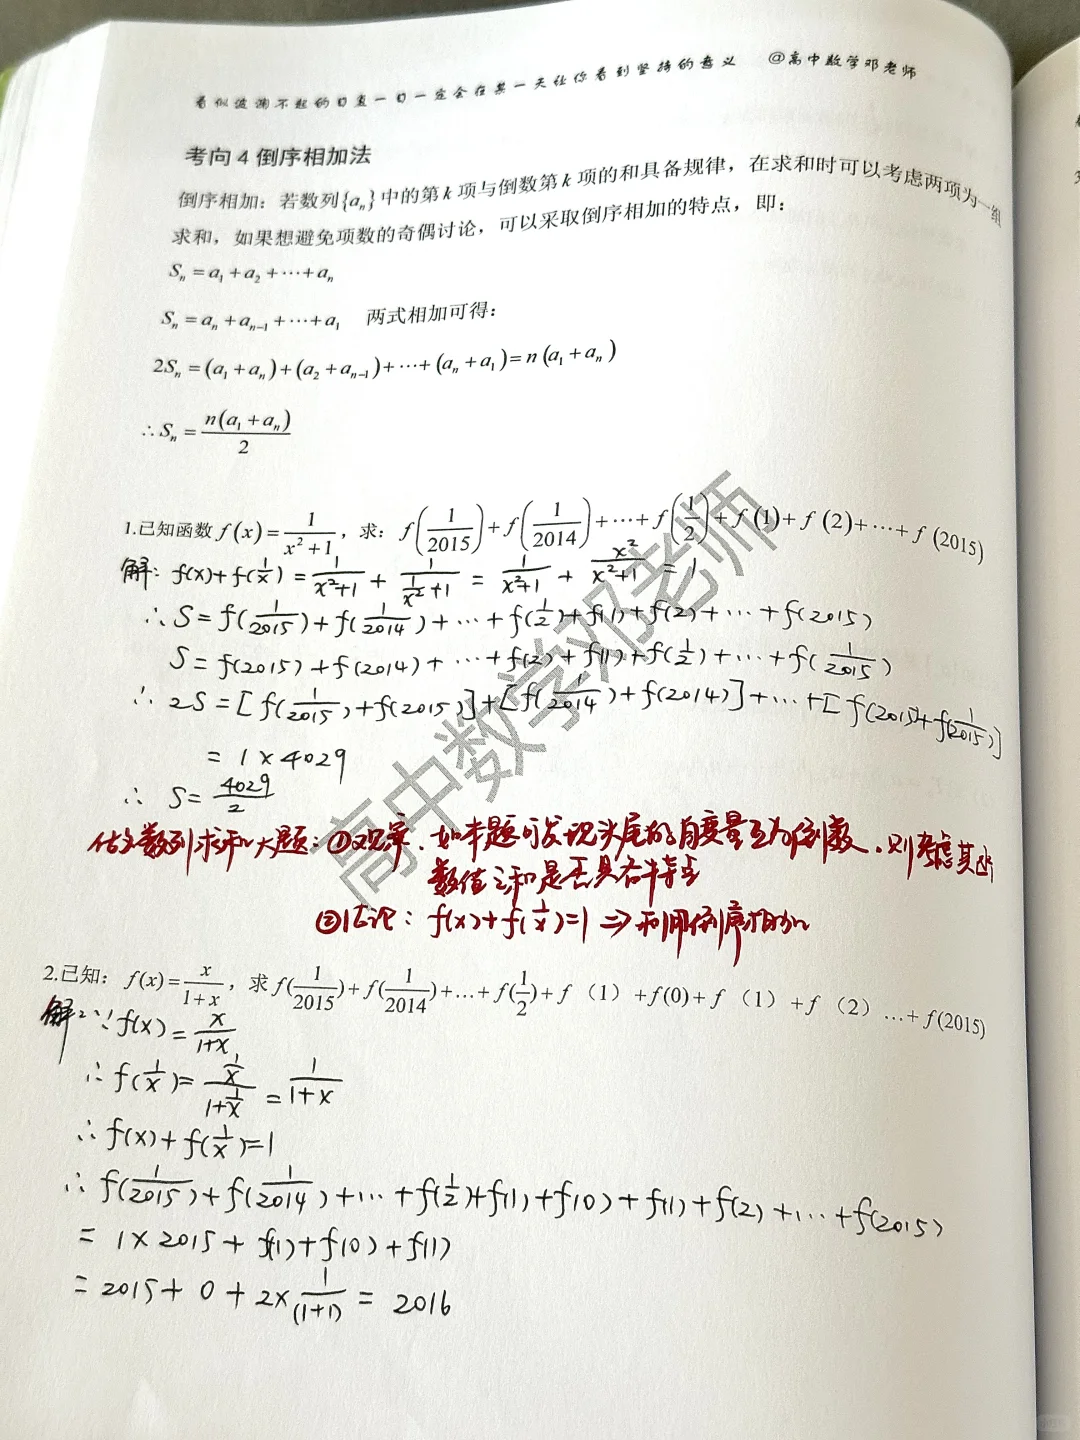 看似波澜不起的日复一日一定会在某一天让你看到坚持的意义 @高中数学邓老师
考向 4 倒序相加法
倒序相加：若数列{aₙ}中的第 k 项与倒数第 k 项的和具备规律，在求和时可以考虑两项为一组
求和，如果想避免项数的奇偶讨论，可以采取倒序相加的特点，即：
Sₙ = a₁ + a₂ + ⋯ + aₙ
Sₙ = aₙ + aₙ₋₁ + ⋯ + a₁ 两式相加可得：
2Sₙ = (a₁ + aₙ) + (a₂ + aₙ₋₁) + ⋯ + (aₙ + a₁) = n (a₁ + aₙ)
∴ Sₙ = n(a₁ + aₙ)/2
1.已知函数 f(x) = 1/(x²+1)，求：f(1/2015) + f(1/2014) + ⋯ + f(1/2) + f (1) + f (2) + ⋯ + f (2015)
解：f(x)+f(1/x) = 1/(x²+1) + 1/(1/x²+1) = 1/(x²+1) + x²/(x²+1) = 1
∴ S = f(1/2015) + f(1/2014) + ⋯ + f(1/2) + f(1) + f(2) + ⋯ + f(2015)
S = f(2015) + f(2014) + ⋯ + f(2) + f(1) + f(1/2) + ⋯ + f(1/2015)
∴ 2S = [f(1/2015) + f(2015)] + [f(1/2014) + f(2014)] + ⋯ + [f(2015) + f(1/2015)]
= 1 × 4029
∴ S = 4029/2
数列求和大题：①观察、如本题可发现头尾的自变量互为倒数，则考虑其函
数值之和是否具有特点
②结论：f(x)+f(1/x)=1 ⇒ 利用倒序相加
2.已知：f(x) = x/(1+x)，求 f(1/2015)+f(1/2014)+…+f(1/2)+f（1）+f(0)+f（1）+f（2）…+f(2015)
解：∵ f(x) = x/(1+x)
∴ f(1/x) = (1/x)/(1+1/x) = 1/(1+x)
∴ f(x) + f(1/x) = 1
∴ f(1/2015) + f(1/2014) + ⋯ + f(1/2) + f(1) + f(0) + f(1) + f(2) + ⋯ + f(2015)
= 1×2015 + f(1) + f(0) + f(1)
= 2015 + 0 + 2×1/(1+1) = 2016
高中数学邓老师